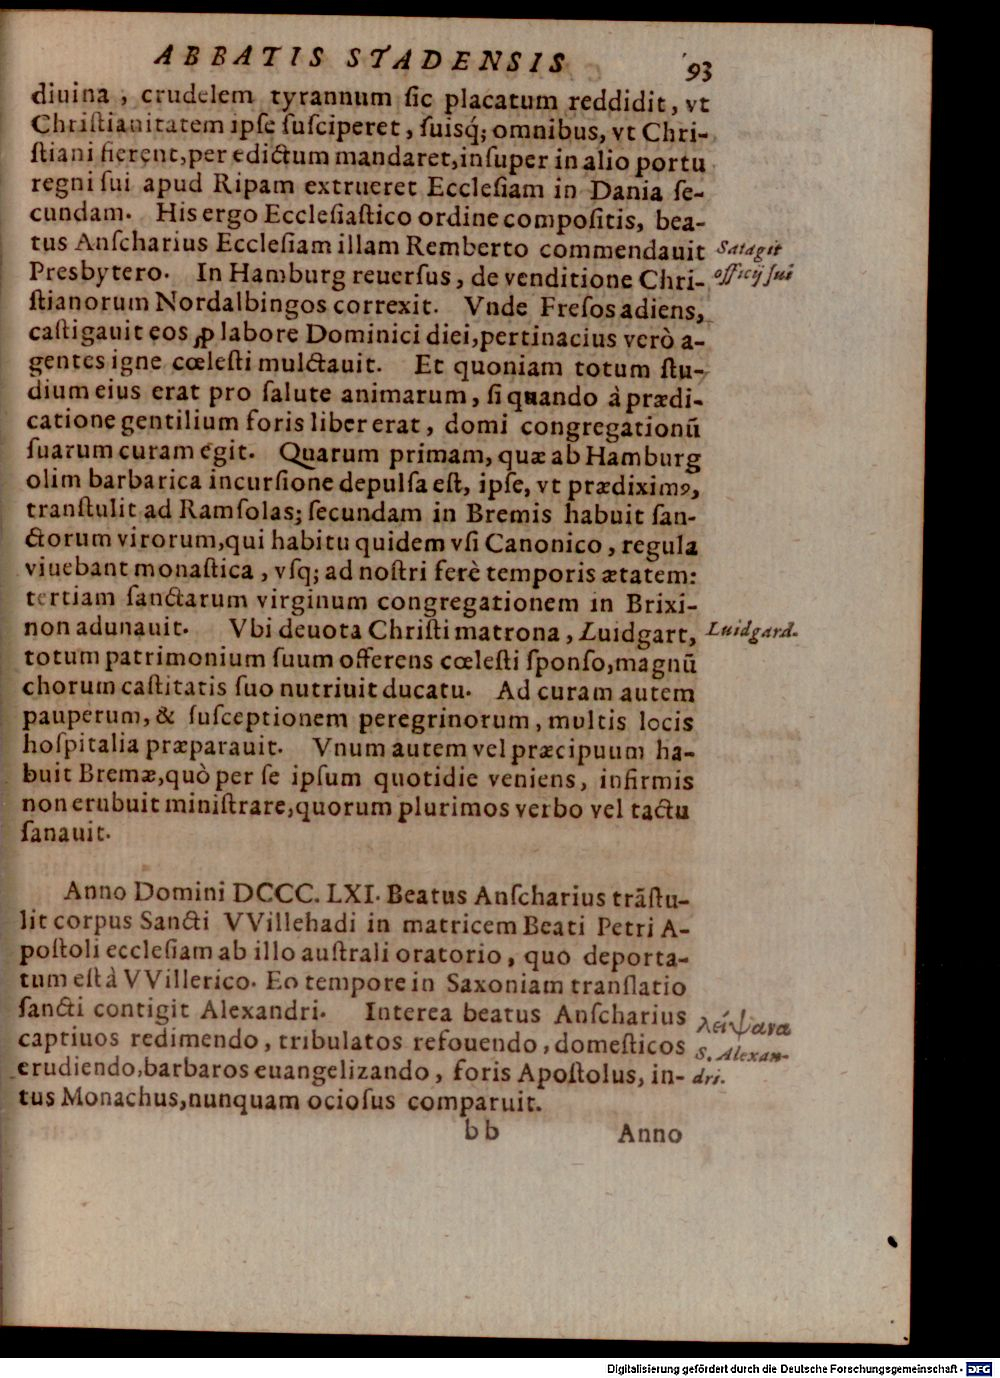 ABBATIS STADENSIS 93
diuina, crudelem tyrannum ſic placatum reddidit, vt
Chriſtianitatem ipſe ſuſciperet, ſuisq́; omnibus, vt Chri-
ſtiani fierent, per edictum mandaret, inſuper in alio portu
regni ſui apud Ripam extrueret Eccleſiam in Dania ſe-
cundam. His ergo Eccleſiaſtico ordine compoſitis, bea-
tus Anſcharius Eccleſiam illam Remberto commendauit
Presbytero. In Hamburg reuerſus, de venditione Chri-
ſtianorum Nordalbingos correxit. Vnde Freſos adiens,
caſtigauit eos ꝓ labore Dominici diei, pertinacius verò a-
gentes igne cœleſti mulctauit. Et quoniam totum ſtu-
dium eius erat pro ſalute animarum, ſi quando à prædi-
catione gentilium foris liber erat, domi congregationū
ſuarum curam egit. Quarum primam, quæ ab Hamburg
olim barbarica incurſione depulſa eſt, ipſe, vt prædiximꝰ,
tranſtulit ad Ramſolas; ſecundam in Bremis habuit ſan-
ctorum virorum, qui habitu quidem vſi Canonico, regula
viuebant monaſtica, vſq; ad noſtri ferè temporis ætatem:
tertiam ſanctarum virginum congregationem in Brixi-
non adunauit. Vbi deuota Chriſti matrona, Luidgart,
totum patrimonium ſuum offerens cœleſti ſponſo, magnū
chorum caſtitatis ſuo nutriuit ducatu. Ad curam autem
pauperum, & ſuſceptionem peregrinorum, multis locis
hoſpitalia præparauit. Vnum autem vel præcipuum ha-
buit Bremæ, quò per ſe ipſum quotidie veniens, infirmis
non erubuit miniſtrare, quorum plurimos verbo vel tactu
ſanauit.
Anno Domini DCCC. LXI. Beatus Anſcharius trāſtu-
lit corpus Sancti VVillehadi in matricem Beati Petri A-
poſtoli eccleſiam ab illo auſtrali oratorio, quo deporta-
tum eſt à VVillerico. Eo tempore in Saxoniam tranſlatio
ſancti contigit Alexandri. Interea beatus Anſcharius
captiuos redimendo, tribulatos refouendo, domeſticos
erudiendo, barbaros euangelizando, foris Apoſtolus, in-
tus Monachus, nunquam ocioſus comparuit.
bb Anno
Satagit
officij ſui
Luidgard.
λείψανα
S. Alexan-
dri.
Digitalisierung gefördert durch die Deutsche Forschungsgemeinschaft - DFG